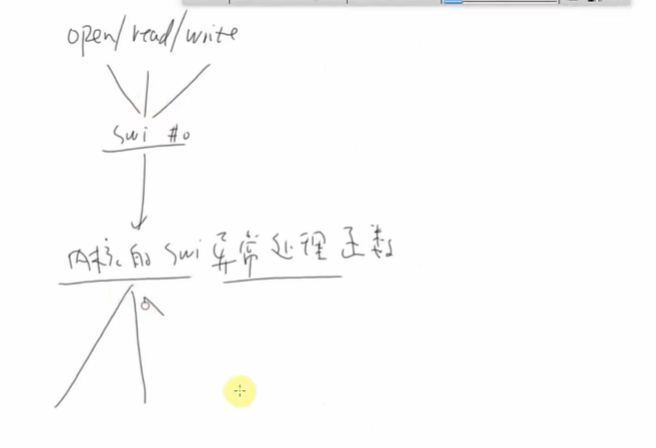 open/read/write
swi #0
内核的 swi 异常处理函数